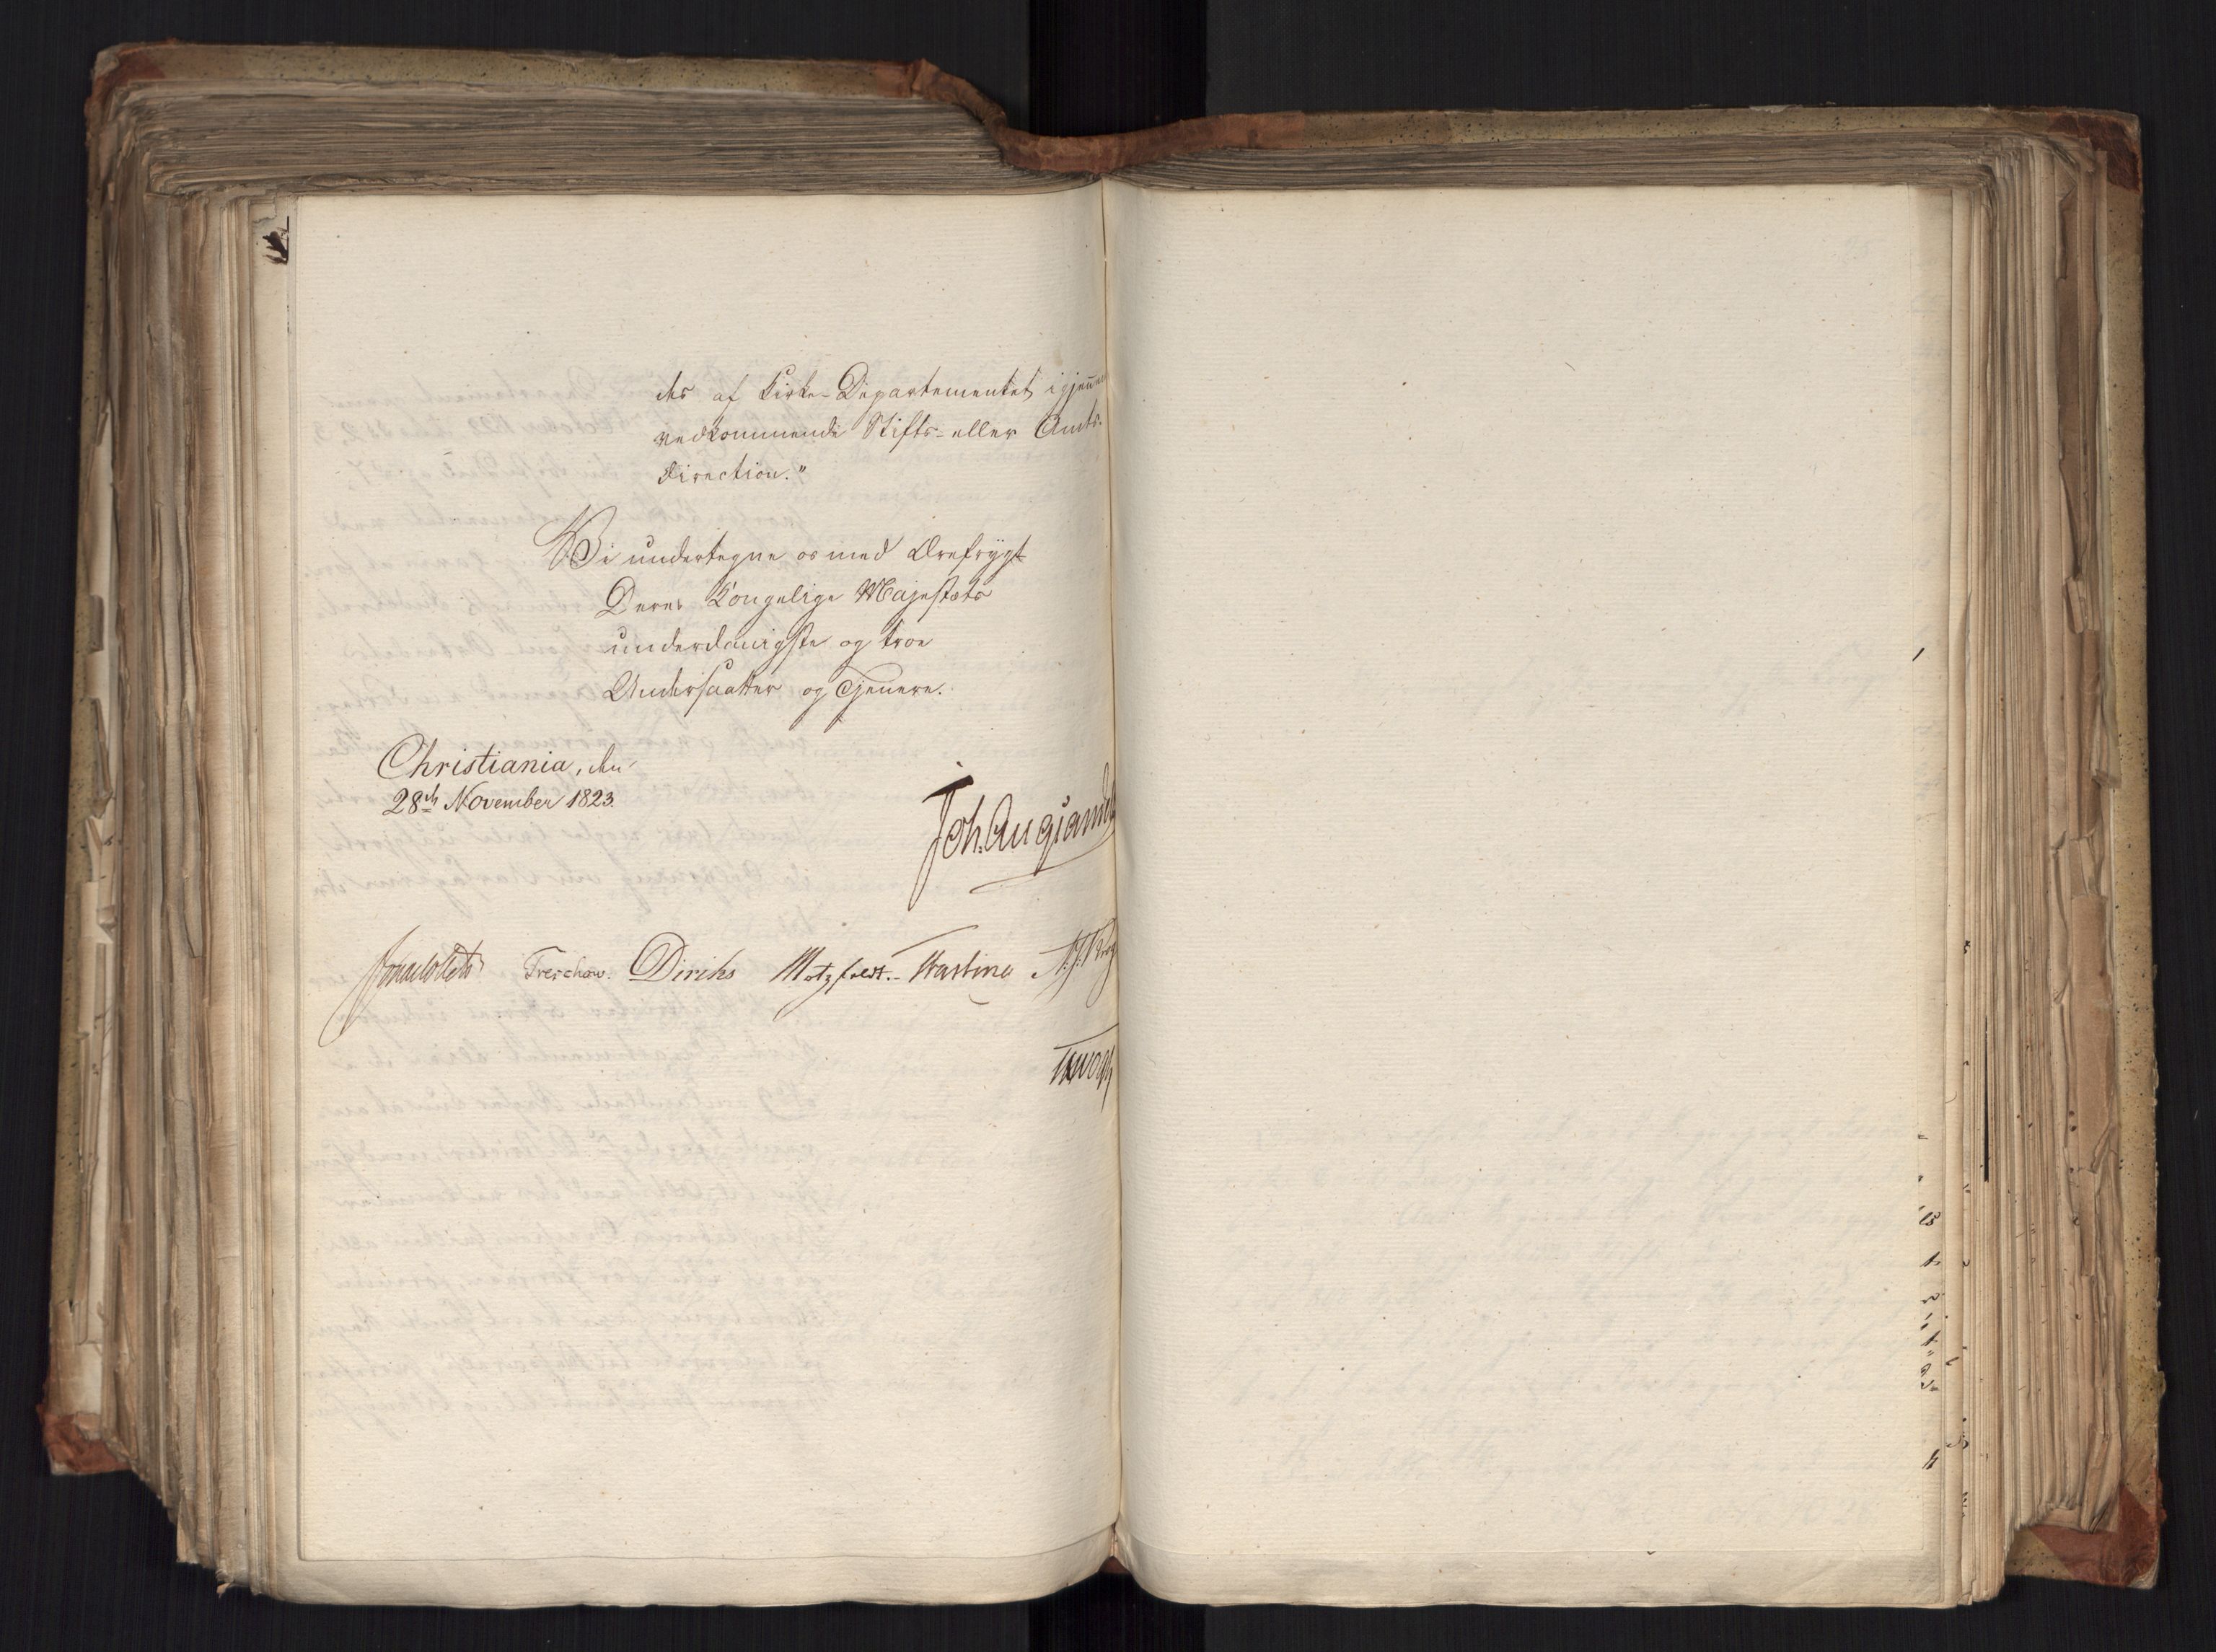 des af Kirke-Departementet igjennem
vedkommende Stifts- eller Amts-
direction."
Vi undertegne os med Ærefrygt
Deres Kongelige Majestæts
underdanigste og troe
Undersaatter og Tjenere.
Christiania, den
28de November 1823.
Joh. Aug
Jonas Collett Treschow. Diriks Motzfeldt. Fasting